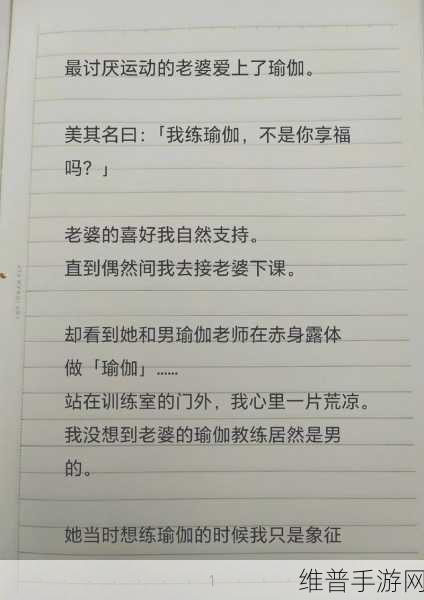 最讨厌运动的老婆爱上了瑜伽。
美其名曰：「我练瑜伽，不是你享福
吗？」
老婆的喜好我自然支持。
直到偶然间我去接老婆下课。
却看到她和男瑜伽老师在赤身露体
做「瑜伽」……
站在训练室的门外，我心里一片荒凉。
我没想到老婆的瑜伽教练居然是男
的。
她当时想练瑜伽的时候我只是象征
1
维普手游网